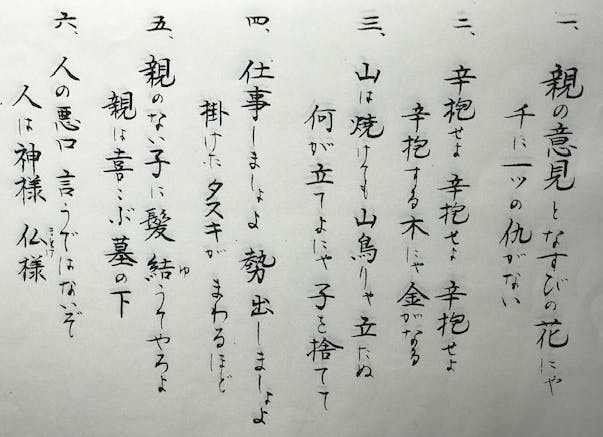 一、親の意見となすびの花にゃ
千に一ツの仇がない
二、辛抱せよ辛抱せよ辛抱せよ
辛抱する木にゃ金がなる
三、山は焼けても山鳥りゃ立たぬ
何が立てよにゃ子を捨てて
四、仕事しましょよ勢出しましょよ
掛けたタスキがまわるほど
五、親のない子に髪結うてやろよ
ゆ
親は喜こぶ墓の下
六、人の悪口言うではないぞ
人は神様仏様
ほとけ